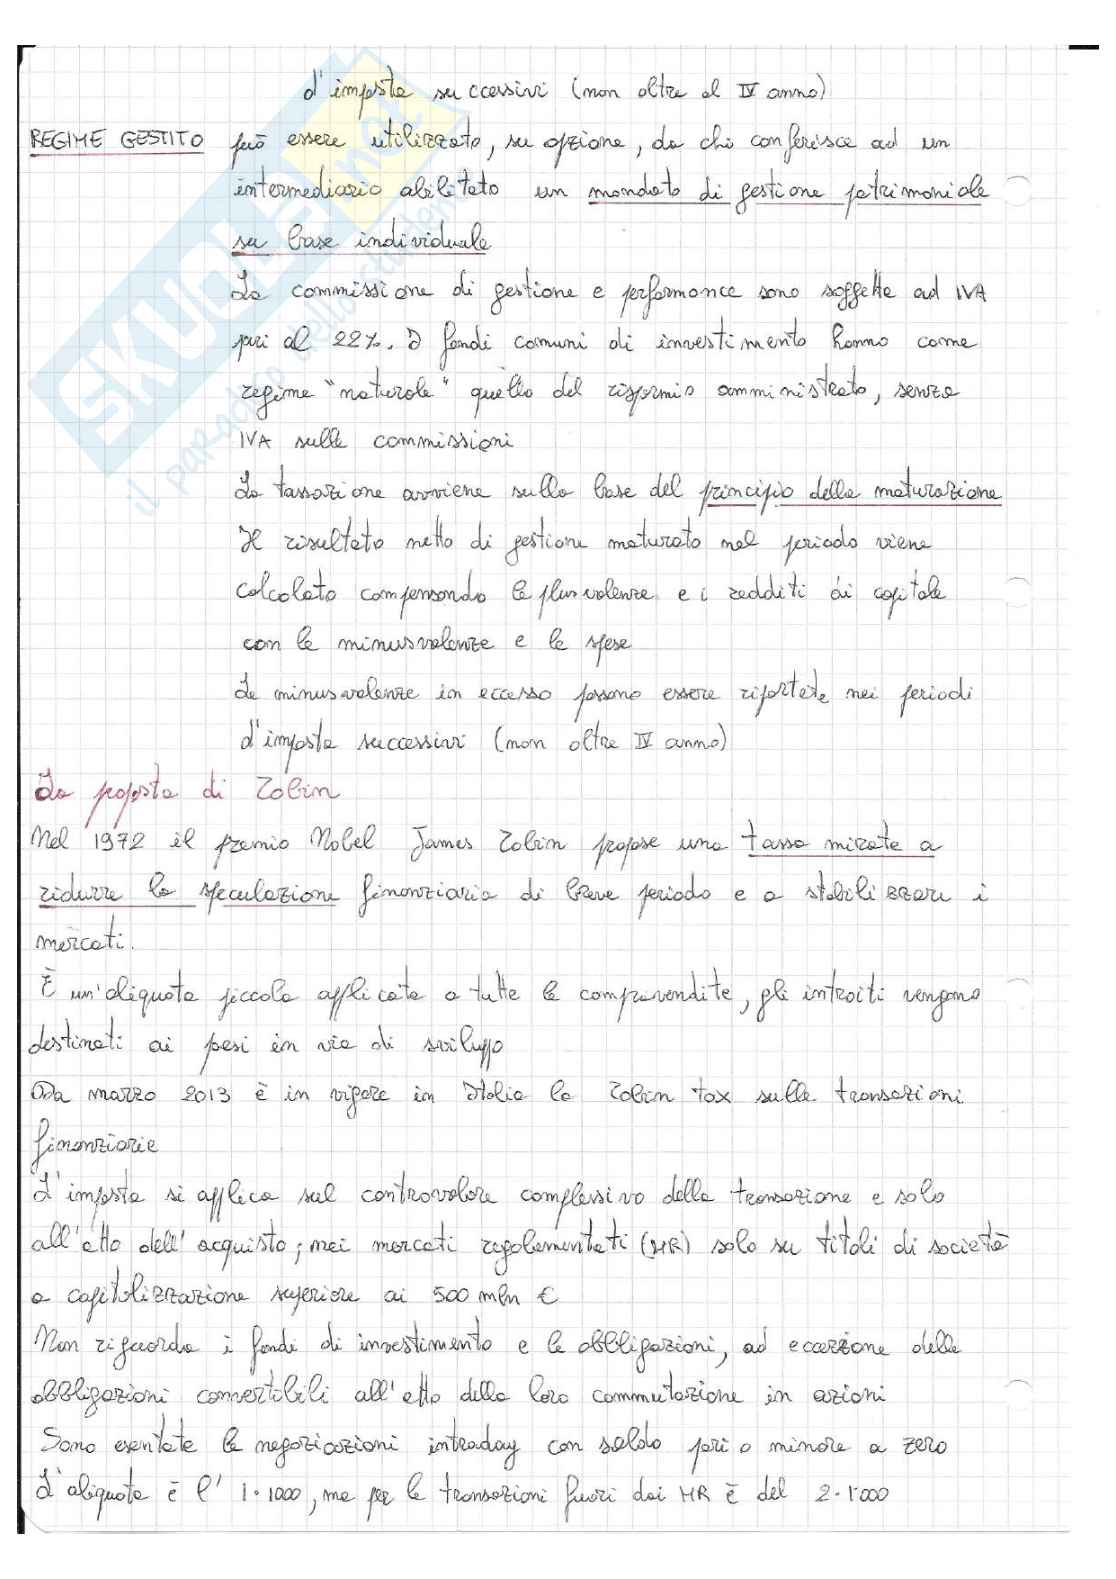 d'imposta successivi (non oltre al IV anno)
REGIME GESTITO può essere utilizzato, su opzione, da chi conferisce ad un
intermediario abilitato un mandato di gestione patrimoniale
su base individuale
Le commissione di gestione e performance sono soggette ad IVA
pari al 22%. I fondi comuni di investimento hanno come
regime "naturale" quello del risparmio amministrato, senza
IVA sulle commissioni
La tassazione avviene sulla base del principio della maturazione
Il risultato netto di gestione maturato nel periodo viene
calcolato compensando le plusvalenze e i redditi di capitale
con le minusvalenze e le spese
Le minusvalenze in eccesso possono essere riportate nei periodi
d'imposta successivi (non oltre IV anno)
La poposta di Tobin
Nel 1972 il premio Nobel James Tobin propose una tassa mirata a
ridurre la speculazione finanziaria di breve periodo e a stabilizzare i
mercati.
È un'aliquota piccola applicata a tutte le compravendite, gli introiti vengono
destinati ai paesi in via di sviluppo
Da marzo 2013 è in vigore in Italia la Tobin tax sulle transazioni
finanziarie
L'imposta si applica sul controvalore complessivo della transazione e solo
all'atto dell'acquisto; nei mercati regolamentati (MR) solo su titoli di società
a capitolizzazione superiore ai 500 mln €
Non riguarda i fondi di investimento e le obbligazioni, ad eccezione delle
obbligazioni convertibili all'atto della loro commutazione in azioni
Sono esentate le negoziazioni intraday con saldo pari o minore a zero
L'aliquota è l' 1·1000, ma per le transazioni fuori dai MR è del 2·1000
SKUOLA.net
il paradiso dello studente